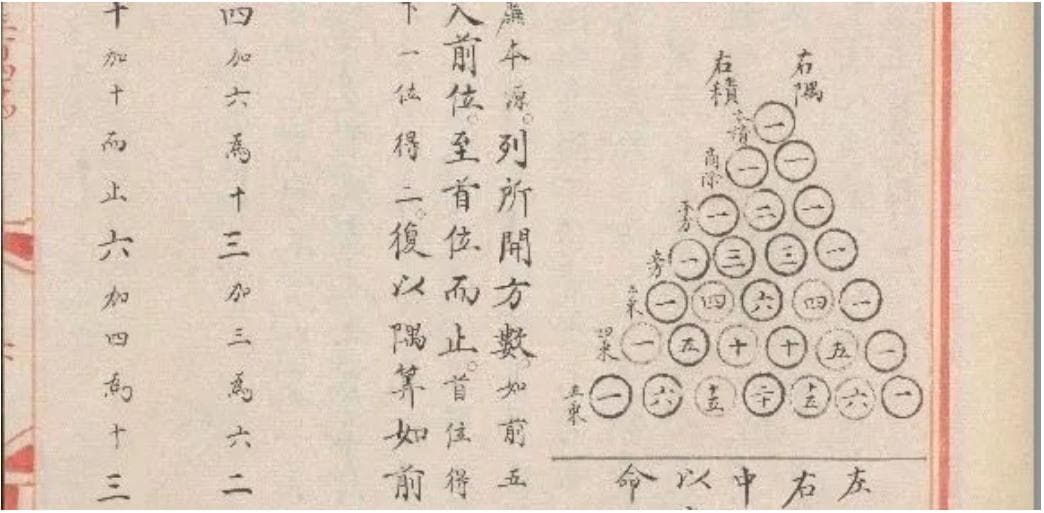 右隅
右積
一
商除 一 一
平方 一 二 一
方 一 三 三 一
三乘 一 四 六 四 一
四乘 一 五 十 十 五 一
五乘 一 六 十五 二十 十五 六 一
左
右
中
以
命
廉本源。列所開方數。如前五
入前位。至首位而止。首位得
下一位得二。復以隅筭如前
四加六爲十三加三爲六二
十加十而止六加四爲十三